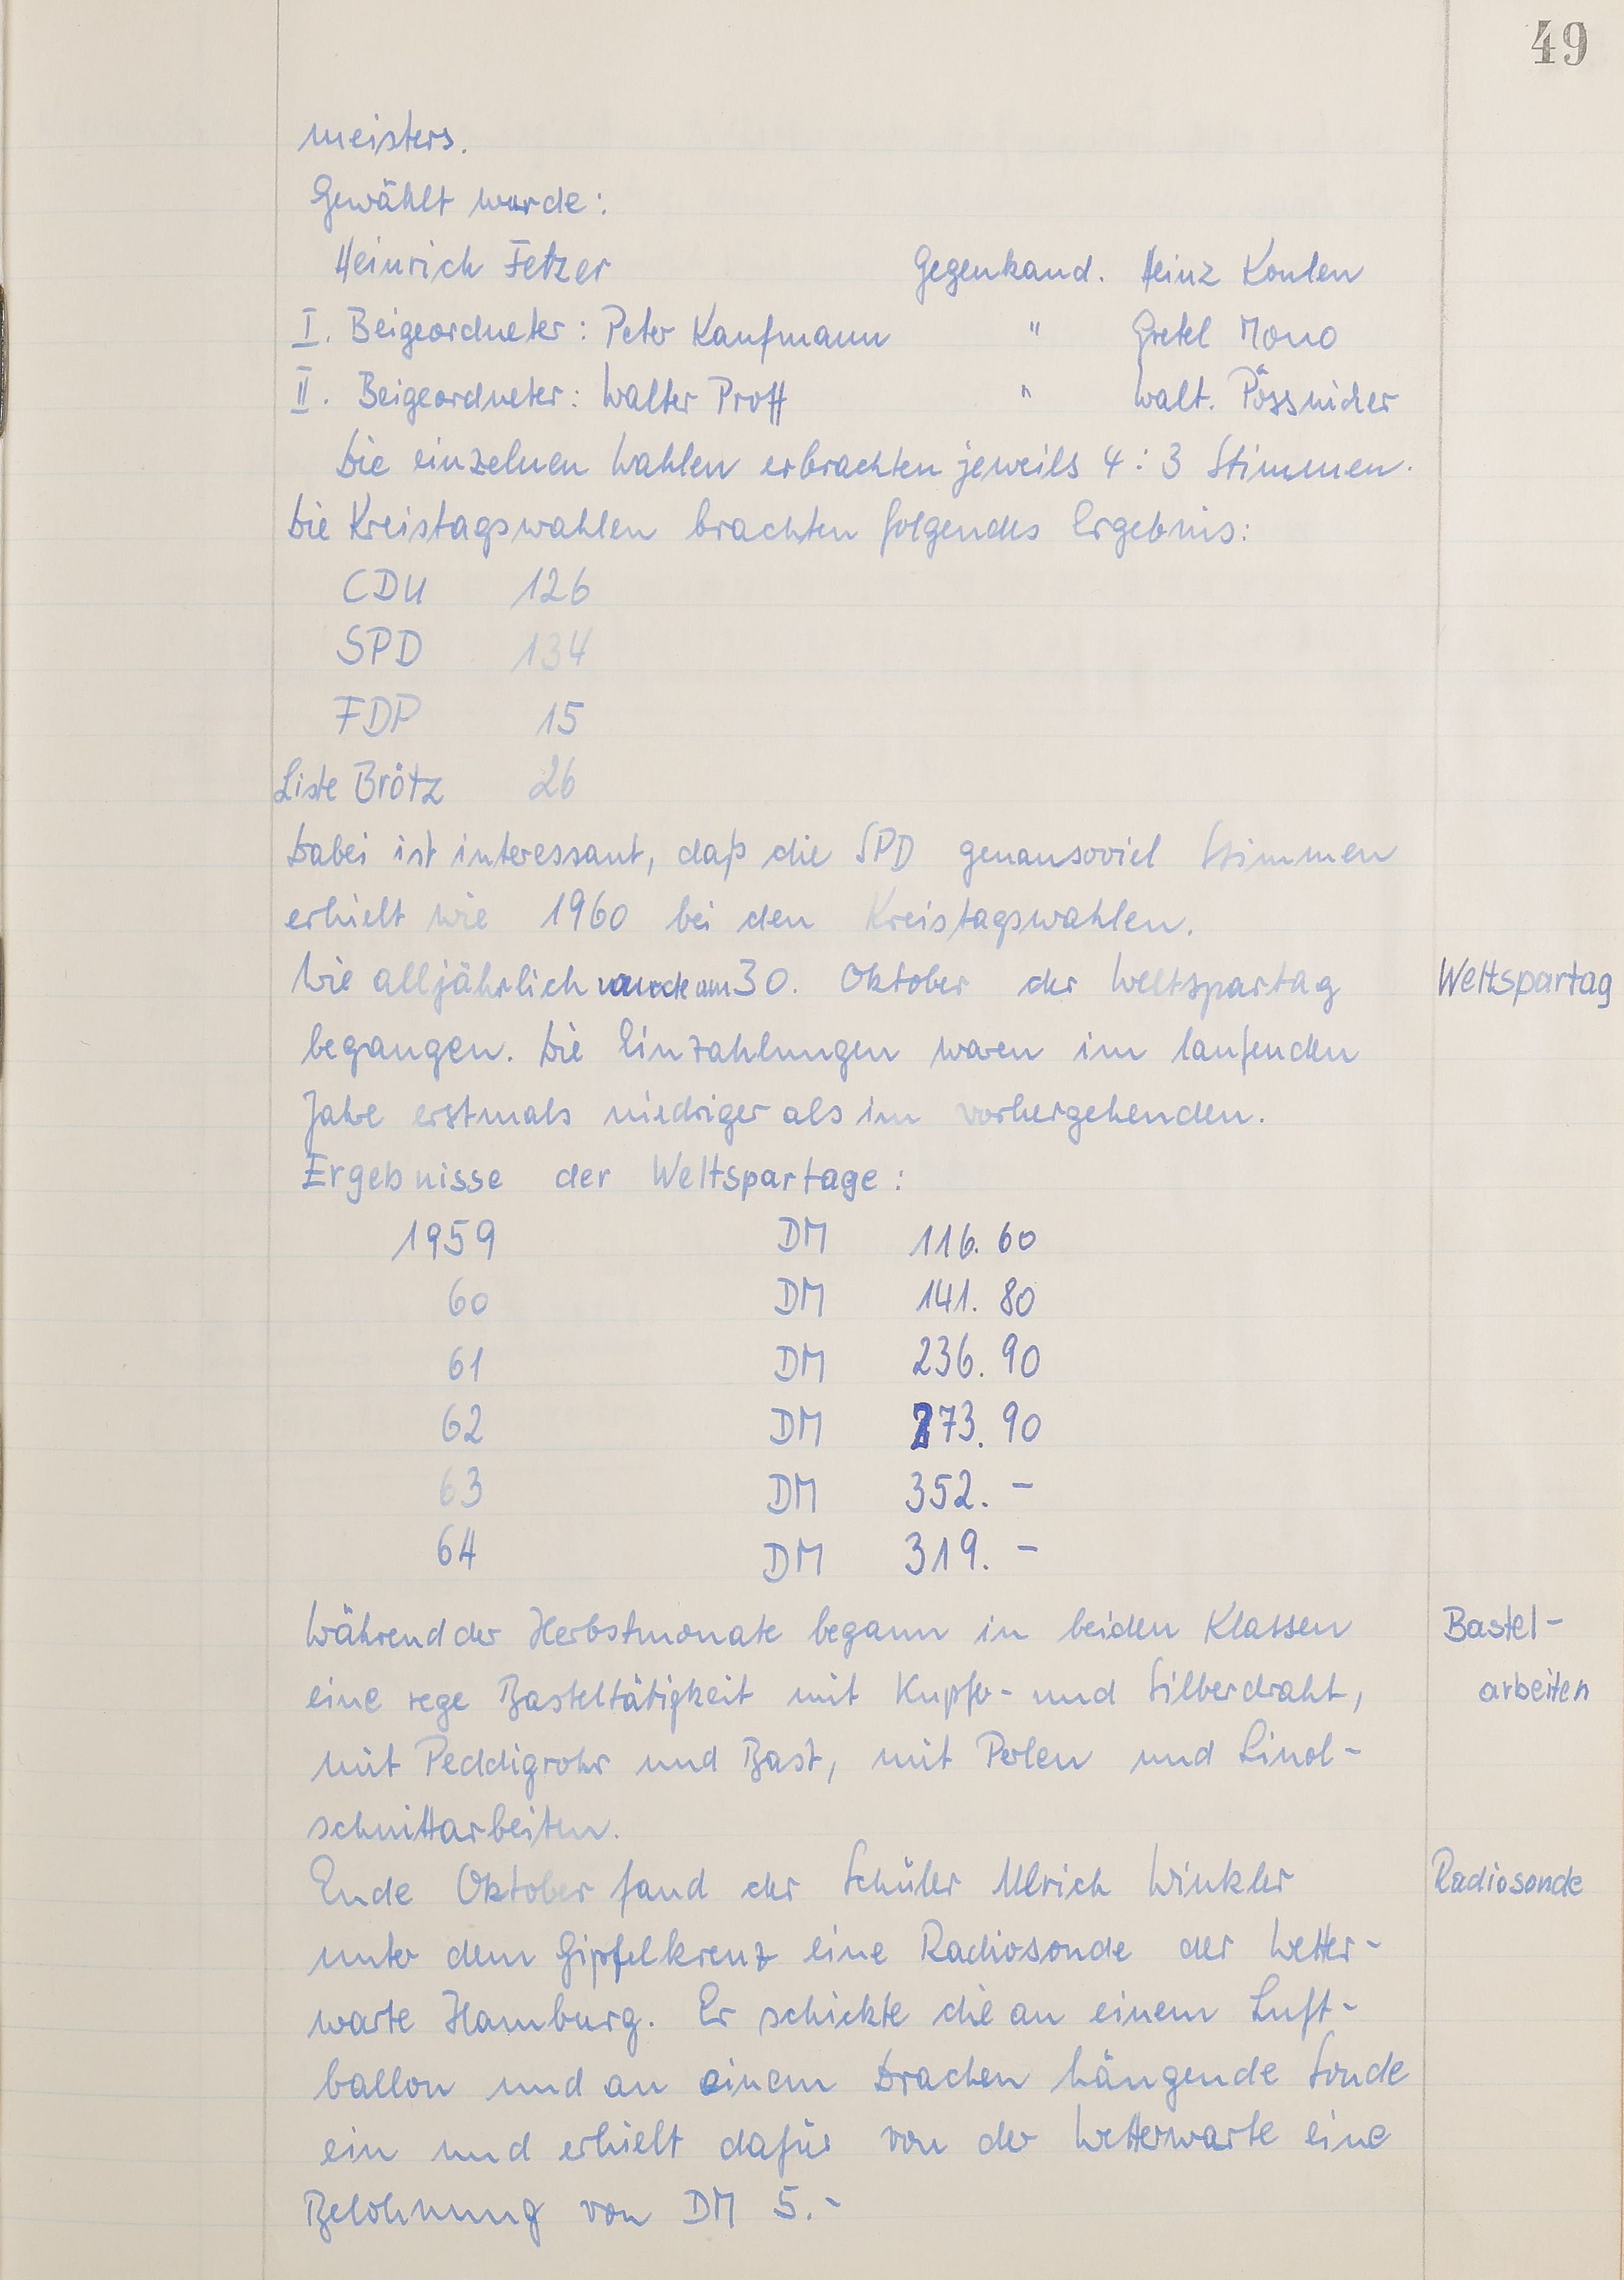 49
meisters.
Gewählt wurde:
Heinrich Fetzer Gegenkand. Heinz Konlen
I. Beigeordneter: Peter Kaufmann " Gretel Mono
II. Beigeordneter: Walter Proff " Walt. Pössnicker
Die einzelnen Wahlen erbrachten jeweils 4:3 Stimmen.
Die Kreistagswahlen brachten folgendes Ergebnis:
CDU 126
SPD 134
FDP 15
Liste Brötz 26
Dabei ist interessant, daß die SPD genausoviel Stimmen
erhielt wie 1960 bei den Kreistagswahlen.
Wie alljährlich wurde am 30. Oktober der Weltspartag Weltspartag
begangen. Die Einzahlungen waren im laufenden
Jahre erstmals niedriger als im vorhergehenden.
Ergebnisse der Weltspartage:
1959 DM 116.60
60 DM 141.80
61 DM 236.90
62 DM 273.90
63 DM 352.-
64 DM 319.-
Während der Herbstmonate begann in beiden Klassen Bastel-
eine rege Basteltätigkeit mit Kupfer- und Silberdraht, arbeiten
mit Peddigrohr und Bast, mit Perlen und Linol-
schnittarbeiten.
Ende Oktober fand der Schüler Ulrich Winkler Radiosonde
unter dem Gipfelkreuz eine Radiosonde der Wetter-
warte Hamburg. Er schickte die an einem Luft-
ballon und an einem Drachen hängende Sonde
ein und erhielt dafür von der Wetterwarte eine
Belohnung von DM 5.-